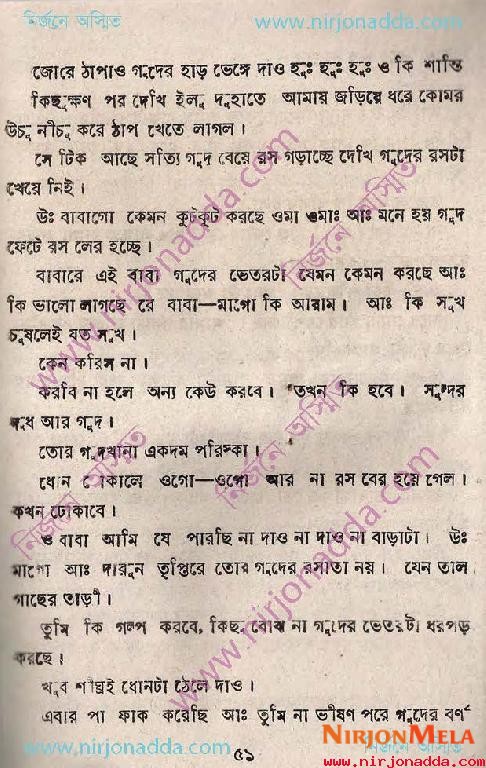 নির্জনে অস্মিত www.nirjonadda.com
জোরে ঠাপাও গুদের হাড় ভেঙ্গে দাও হুঃ হুঃ হুঃ ও কি শান্তি
কিছুক্ষণ পর দেখি ইলু দুহাতে আমায় জড়িয়ে ধরে কোমর
উচু নীচু করে ঠাপ খেতে লাগল।
সে টিক আছে সত্যি গুদ বেয়ে রস গড়াচ্ছে দেখি গুদের রসটা
খেয়ে নিই।
উঃ বাবাগো কেমন কুটকুট করছে ওমা ওমাঃ আঃ মনে হয় গুদ
ফেটে রস লের হচ্ছে।
বাবারে এই বাবা গুদের ভেতরটা যেমন কেমন করছে আঃ
কি ভালো লাগছে রে বাবা—মাগো কি আরাম। আঃ কি সুখ
চুষলেই যত সুখ।
কেন করিস না।
করবি না হলে অন্য কেউ করবে। তখন কি হবে। সুন্দর
দুধ আর গুদ।
তোর গুদখানা একদম পরিস্কা।
ধোন ঢোকালে ওগো—ওগো আর না রস বের হয়ে গেল।
কখন ঢোকাবে।
ও বাবা আমি যে পারছি না দাও না দাও না বাড়াটা। উঃ
মাগো আঃ দারুন তৃপ্তিরে তোর গুদের রসাতা নয়। যেন তাল
গাছের তাড়ী।
তুমি কি গল্প করবে, কিছু বোঝ না গুদের ভেতরটা ধরপড়
করছে।
খুব শীঘ্রই ধোনটা ঠেলে দাও।
এবার পা ফাক করেছি আঃ তুমি না ভীষণ পরে গুদের বর্ণ
৫১
www.nirjonadda.com নির্জনে অস্মিত
NIRJONMELA
www.nirjonadda.com
www.nirjonadda.com
নির্জনে অস্মিত
নির্জনে অস্মিত
নির্জনে অস্মিত
www.nirjonadda.com